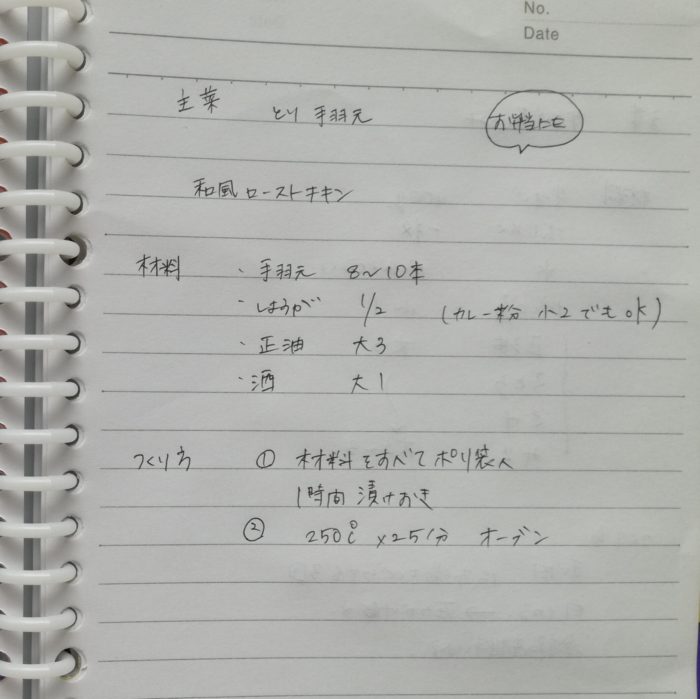 No.
Date
主菜 とり 手羽元
お弁当にも
和風ローストチキン
材料 ・手羽元 8〜10本
・しょうが 1/2 (カレー粉 小2でもok)
・正油 大3
・酒 大1
つくり方 ① 材料をすべてポリ袋へ
1時間 漬けおき
② 250℃ ×25分 オーブン